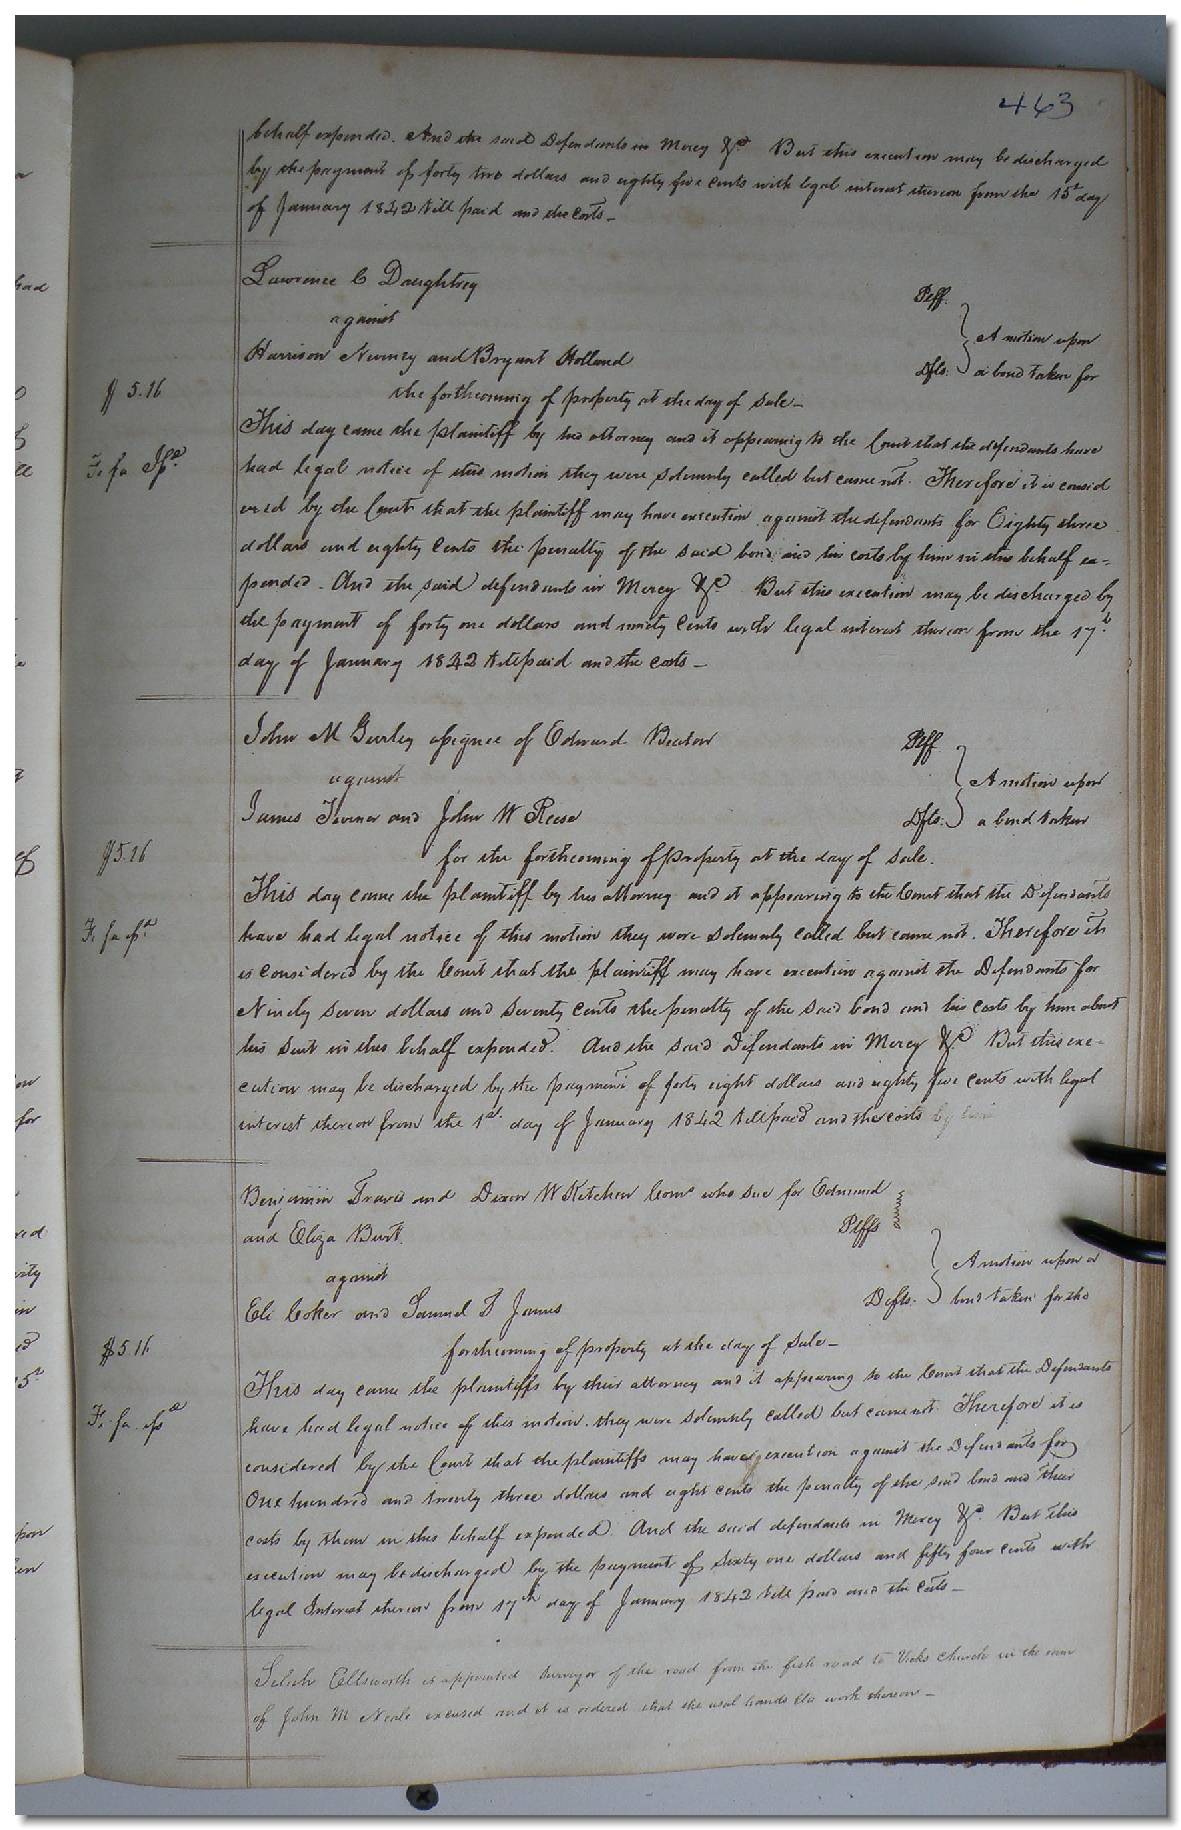 463
behalf expended. And the said Defendants in Mercy &c But this execution may be discharged
by the payment of forty two dollars and eighty five cents with legal interest thereon from the 15th day
of January 1842 till paid and the costs_
Lawrence C Daughtrey Plff.
against
A motion upon
Harrison Nurney and Bryant Holland Dfts. a bond taken for
$5.16
the forthcoming of property at the day of sale_
This day came the plaintiff by his attorney and it appearing to the Court that the defendants have
Fi fa
had legal notice of this motion they were solemnly called but came not. Therefore it is consid
ered by the Court that the plaintiff may have execution against the defendants for Eighty three
dollars and eighty Cents the penalty of the said bond and his costs by him in this behalf ex=
pended. And the said defendants in Mercy &c. But this execution may be discharged by
the payment of forty one dollars and ninety Cents with legal interest thereon from the 17th
day of January 1842 till paid and the costs_
John M Gurley assignee of Edward Beaton Plff
against
A motion upon
James and John W Reese Dfts. a bond taken
$5.16
for the forthcoming of property at the day of sale.
This day came the plaintiff by his attorney and it appearing to the Court that the Defendants
Fi fa
have had legal notice of this motion they were solemnly called but came not. Therefore it
is considered by the Court that the plaintiff may have execution against the Defendants for
Ninety seven dollars and seventy cents the penalty of the said bond and his costs by him about
his suit in this behalf expended. And the said Defendants in Mercy &c But this exe=
cution may be discharged by the payment of forty eight dollars and eighty five cents with legal
interest thereon from the 1st. day of January 1842 till paid and the costs
Benjamin Travis and Dixon W Kitchen Coms who sue for Edmund
and Eliza Burt Plffs
against
A motion upon a
Eli Coker and Samuel T James Defts. bond taken for the
$5.16
forthcoming of property at the day of sale_
This day came the plaintiffs by their attorney and it appearing to the Court that the Defendants
Fi. fa
have had legal notice of this motion. they were solemnly called but came not. Therefore it is
considered by the Court that the plaintiffs may have execution against the Defendants for
One hundred and twenty three dollars and eight cents the penalty of the said bond and their
costs by them in this behalf expended. And the said defendants in Mercy &c. But this
execution may be discharged by the payment of Sixty one dollars and fifty four cents with
legal Interest thereon from 17th day of January 1842 till paid and the costs_
Ellsworth is appointed surveyor of the road from the fish road to Vicks Church in the room
of John M Neale excused and it is ordered that the usual hands do work thereon_